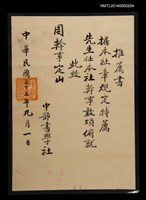 NMTL20140000204
推薦書
據本社章規定特薦
先生任本社幹事敬頌俯就
此致
周幹事定山
中部書學社
中華民國三十五年九月一日